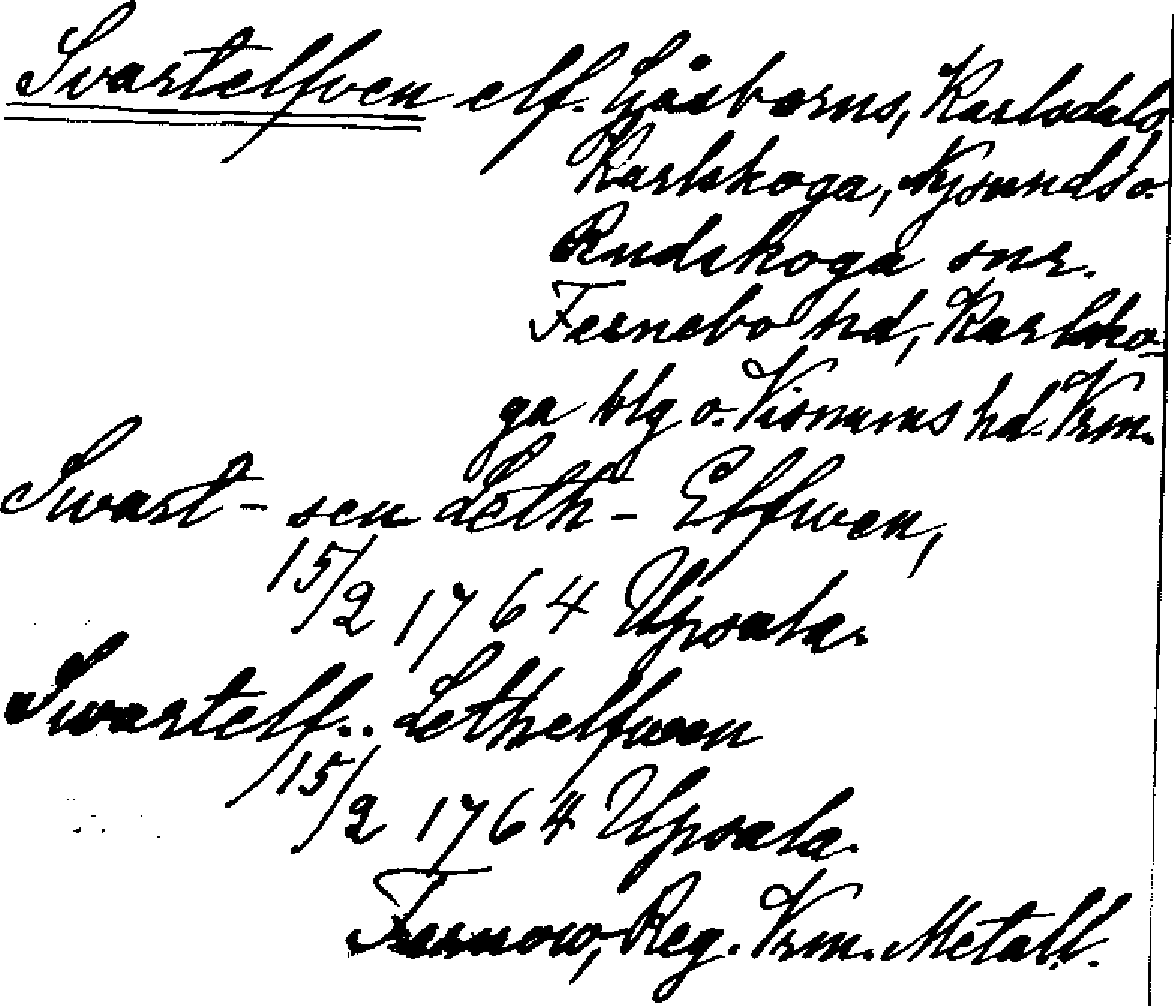 Svartelfven elf. Gåsborns, Karlsdals,
Karlskoga, Nysunds o.
Rudskoga snr.
Fernebo hd, Karlsko-
ga blg o. Visnums hd. Vrm.
Swart- seu Leth- Elfwen,
15/2 1764 Upsala.
Swartelf.. Lethelfwen
15/2 1764 Upsala.
Fernow, Reg. Vrm. Metall.